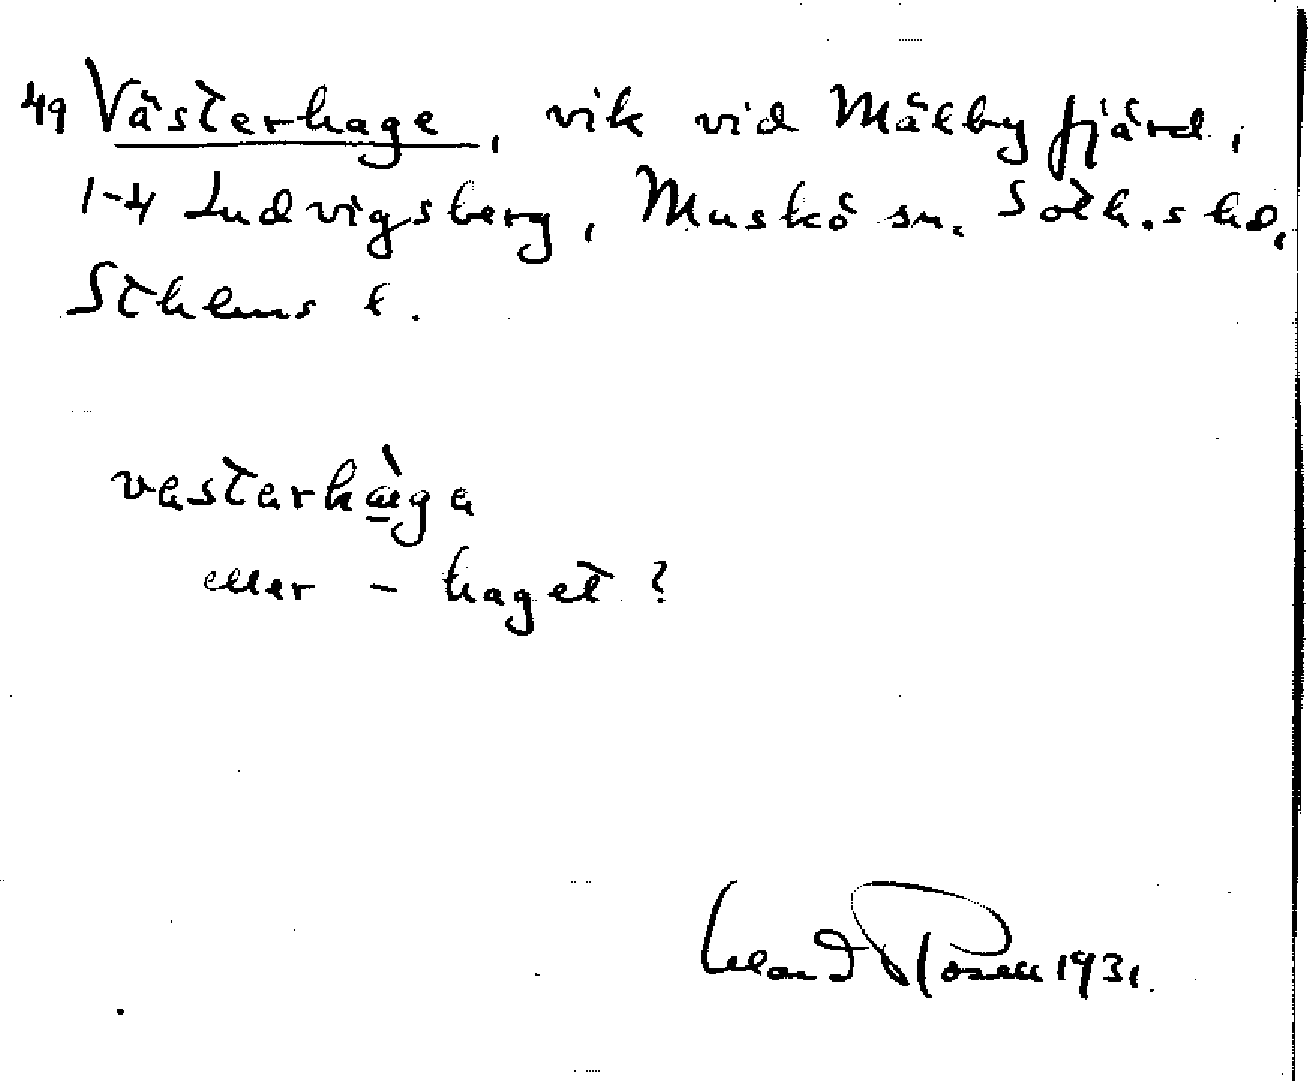 49 Västerhage, vik vid Mälby fjärd,
1-4 Ludvigsberg, Muskö sn. Soth.s hd,
Sthlms l.
vestarhàga
eller - haget?
Rosell 1931.